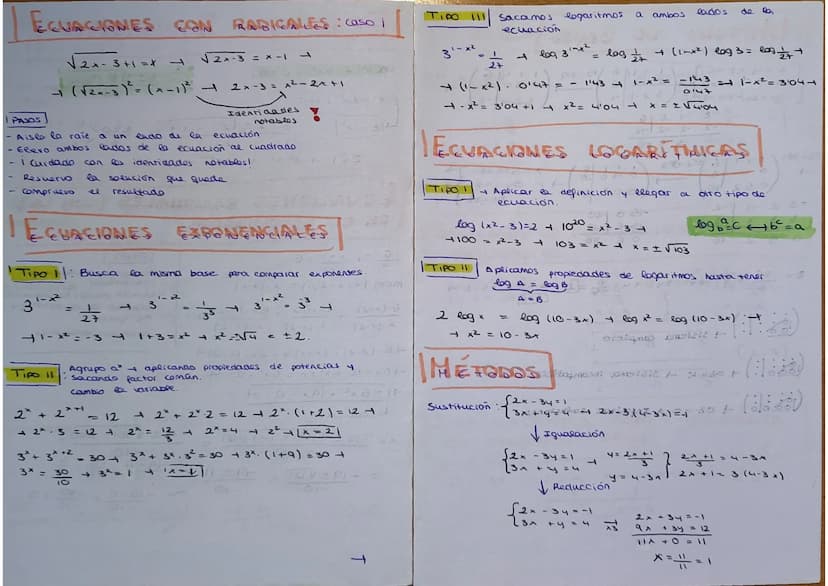 ECUACIONES CON RADICALES: caso 1
√2x-3+1=x → √2x-3 = x-1 →
→ (√2x-3)² = (x-1)² → 2x-3 = x²-2x+1
Identidades
notables !
PASOS
- Aislo la raíz a un lado de la ecuación
- Elevo ambos lados de la ecuación al cuadrado
- ¡Cuidado con las identidades notables!
- Resuelvo la solución que queda
- Compruebo el resultado
ECUACIONES EXPONENCIALES
TIPO I: Busca la misma base para comparar exponentes.
3^1-x² = 1/27 → 3^1-x² = 1/3³ → 3^1-x² = 3^-3 →
→ 1-x² = -3 → 1+3=x² → x²=√4 = ±2.
TIPO II: Agrupo aˣ → aplicando propiedades de potencias y
sacando factor común.
Cambio la variable.
2ˣ + 2ˣ⁺¹ = 12 → 2ˣ + 2ˣ·2 = 12 → 2ˣ·(1+2) = 12 →
→ 2ˣ·3 = 12 → 2ˣ = 12/3 → 2ˣ = 4 → 2² → x=2
3ˣ + 3ˣ⁺² = 30 → 3ˣ + 3ˣ·3² = 30 → 3ˣ·(1+9) = 30 →
3ˣ = 30/10 → 3ˣ = 1 → x=1
TIPO III Sacamos logaritmos a ambos lados de la
ecuación
3^1-x² = 1/27 → log 3^1-x² = log 1/27 → (1-x²) log 3 = log 1/27 →
→ (1-x²) · 0'47 = -1'43 → 1-x² = -1'43/0'47 → 1-x² = 3'04 →
→ -x² = 3'04+1 → x² = 4'04 → x = ±√4'04
ECUACIONES LOGARÍTMICAS
TIPO I → Aplicar la definición y llegar a otro tipo de
ecuación.
log (x²-3)=2 → 10²⁰ = x²-3 →
log_b a = c ↔ bᶜ = a
→ 100 = x²-3 → 103 = x² → x = ±√103
TIPO II Aplicamos propiedades de logaritmos hasta tener
log A = log B
A = B
2 log x = log (10-3x) → log x² = log (10-3x) →
→ x² = 10-3x
MÉTODOS
Sustitución: {2x-3y=1
3x+y=4 → 2x-3(4-3x)=1
↓ Igualación
{2x-3y=1
3x+y=4 → y = 2x+1/3
y = 4-3x } 2x+1/3 = 4-3x
2x+1 = 3(4-3x)
↓ Reducción
{2x-3y=-1
3x+y=4 →x3
2x-3y=-1
9x+3y=12
11x+0=11
x = 11/11 = 1